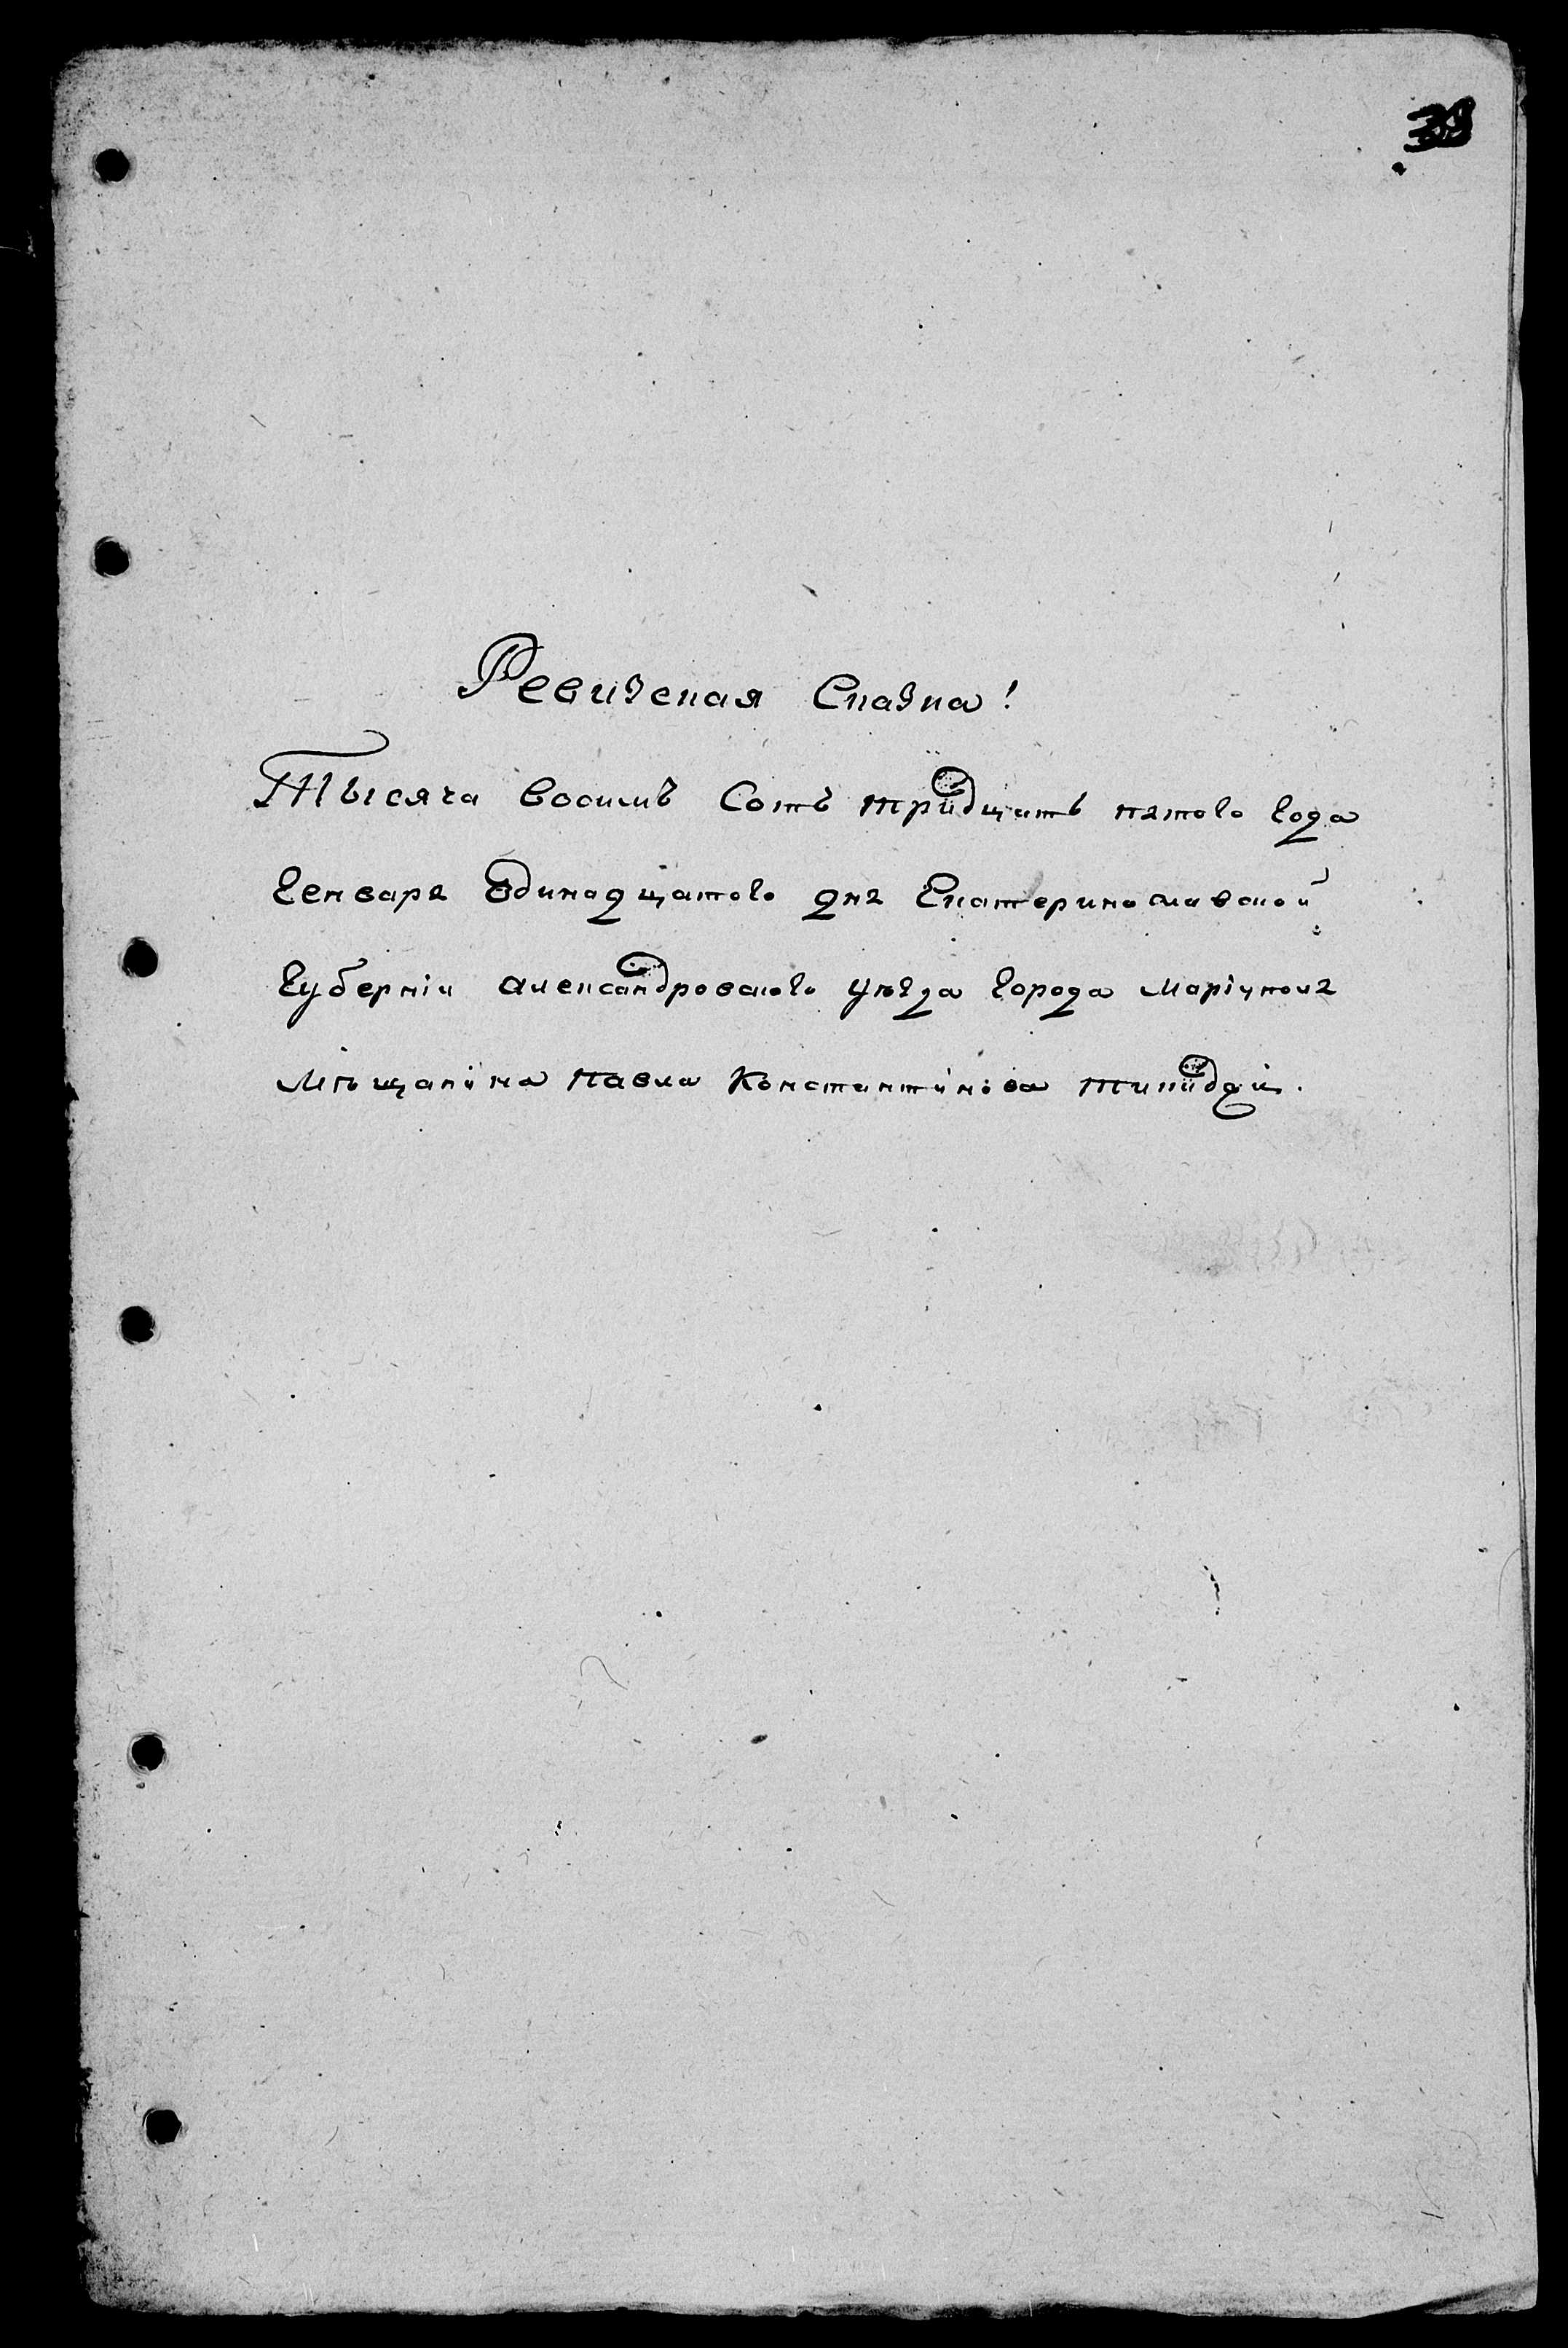 39
Ревизская Сказка!
Тысяча восимъ Сотъ тридцать пятого года
Генваря Одинадцатого дня Екатеринославской
Губерніи александровского уѣзда города Маріуполя
Мѣщанина Павла Константинова